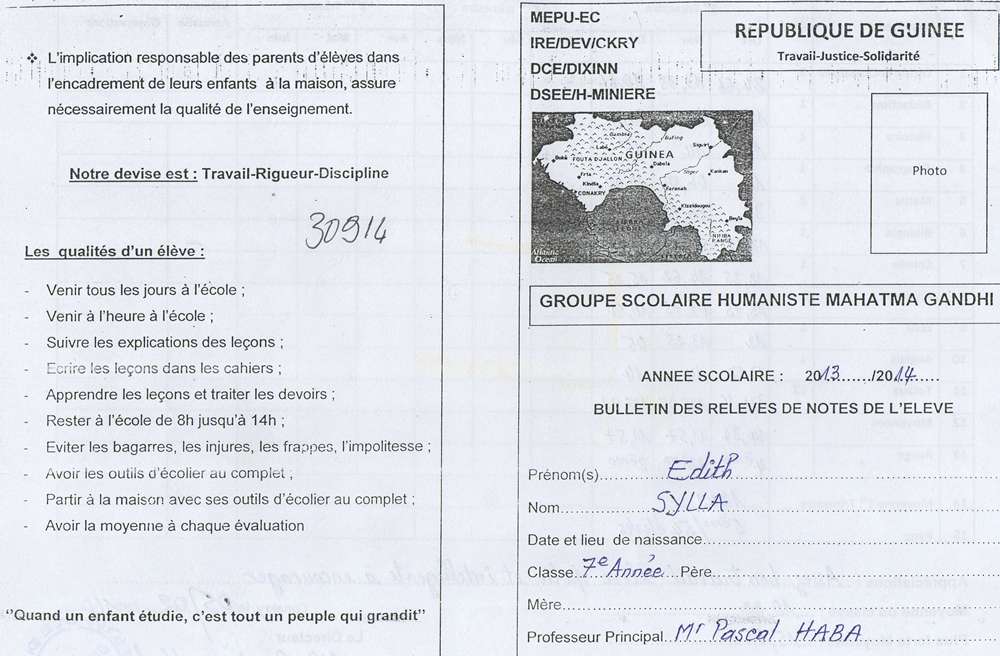 ❖ L'implication responsable des parents d'élèves dans
l'encadrement de leurs enfants à la maison, assure
nécessairement la qualité de l'enseignement.
Notre devise est : Travail-Rigueur-Discipline
30914
Les qualités d'un élève :
- Venir tous les jours à l'école ;
- Venir à l'heure à l'école ;
- Suivre les explications des leçons ;
- Ecrire les leçons dans les cahiers ;
- Apprendre les leçons et traiter les devoirs ;
- Rester à l'école de 8h jusqu'à 14h ;
- Eviter les bagarres, les injures, les frappes, l'impolitesse ;
- Avoir les outils d'écolier au complet ;
- Partir à la maison avec ses outils d'écolier au complet ;
- Avoir la moyenne à chaque évaluation
"Quand un enfant étudie, c'est tout un peuple qui grandit"
MEPU-EC
IRE/DEV/CKRY
DCE/DIXINN
DSEE/H-MINIERE
REPUBLIQUE DE GUINEE
Travail-Justice-Solidarité
GUINEA
FOUTA DJALLON
Labé
Dabola
Kankan
Siguiri
Kindia
CONAKRY
Faranah
Kissidougou
Beyla
Atlantic
Ocean
Photo
GROUPE SCOLAIRE HUMANISTE MAHATMA GANDHI
ANNEE SCOLAIRE : 2013....../2014....
BULLETIN DES RELEVES DE NOTES DE L'ELEVE
Prénom(s) Edith
Nom SYLLA
Date et lieu de naissance
Classe 7e Année Père
Mère
Professeur Principal Mr Pascal HABA